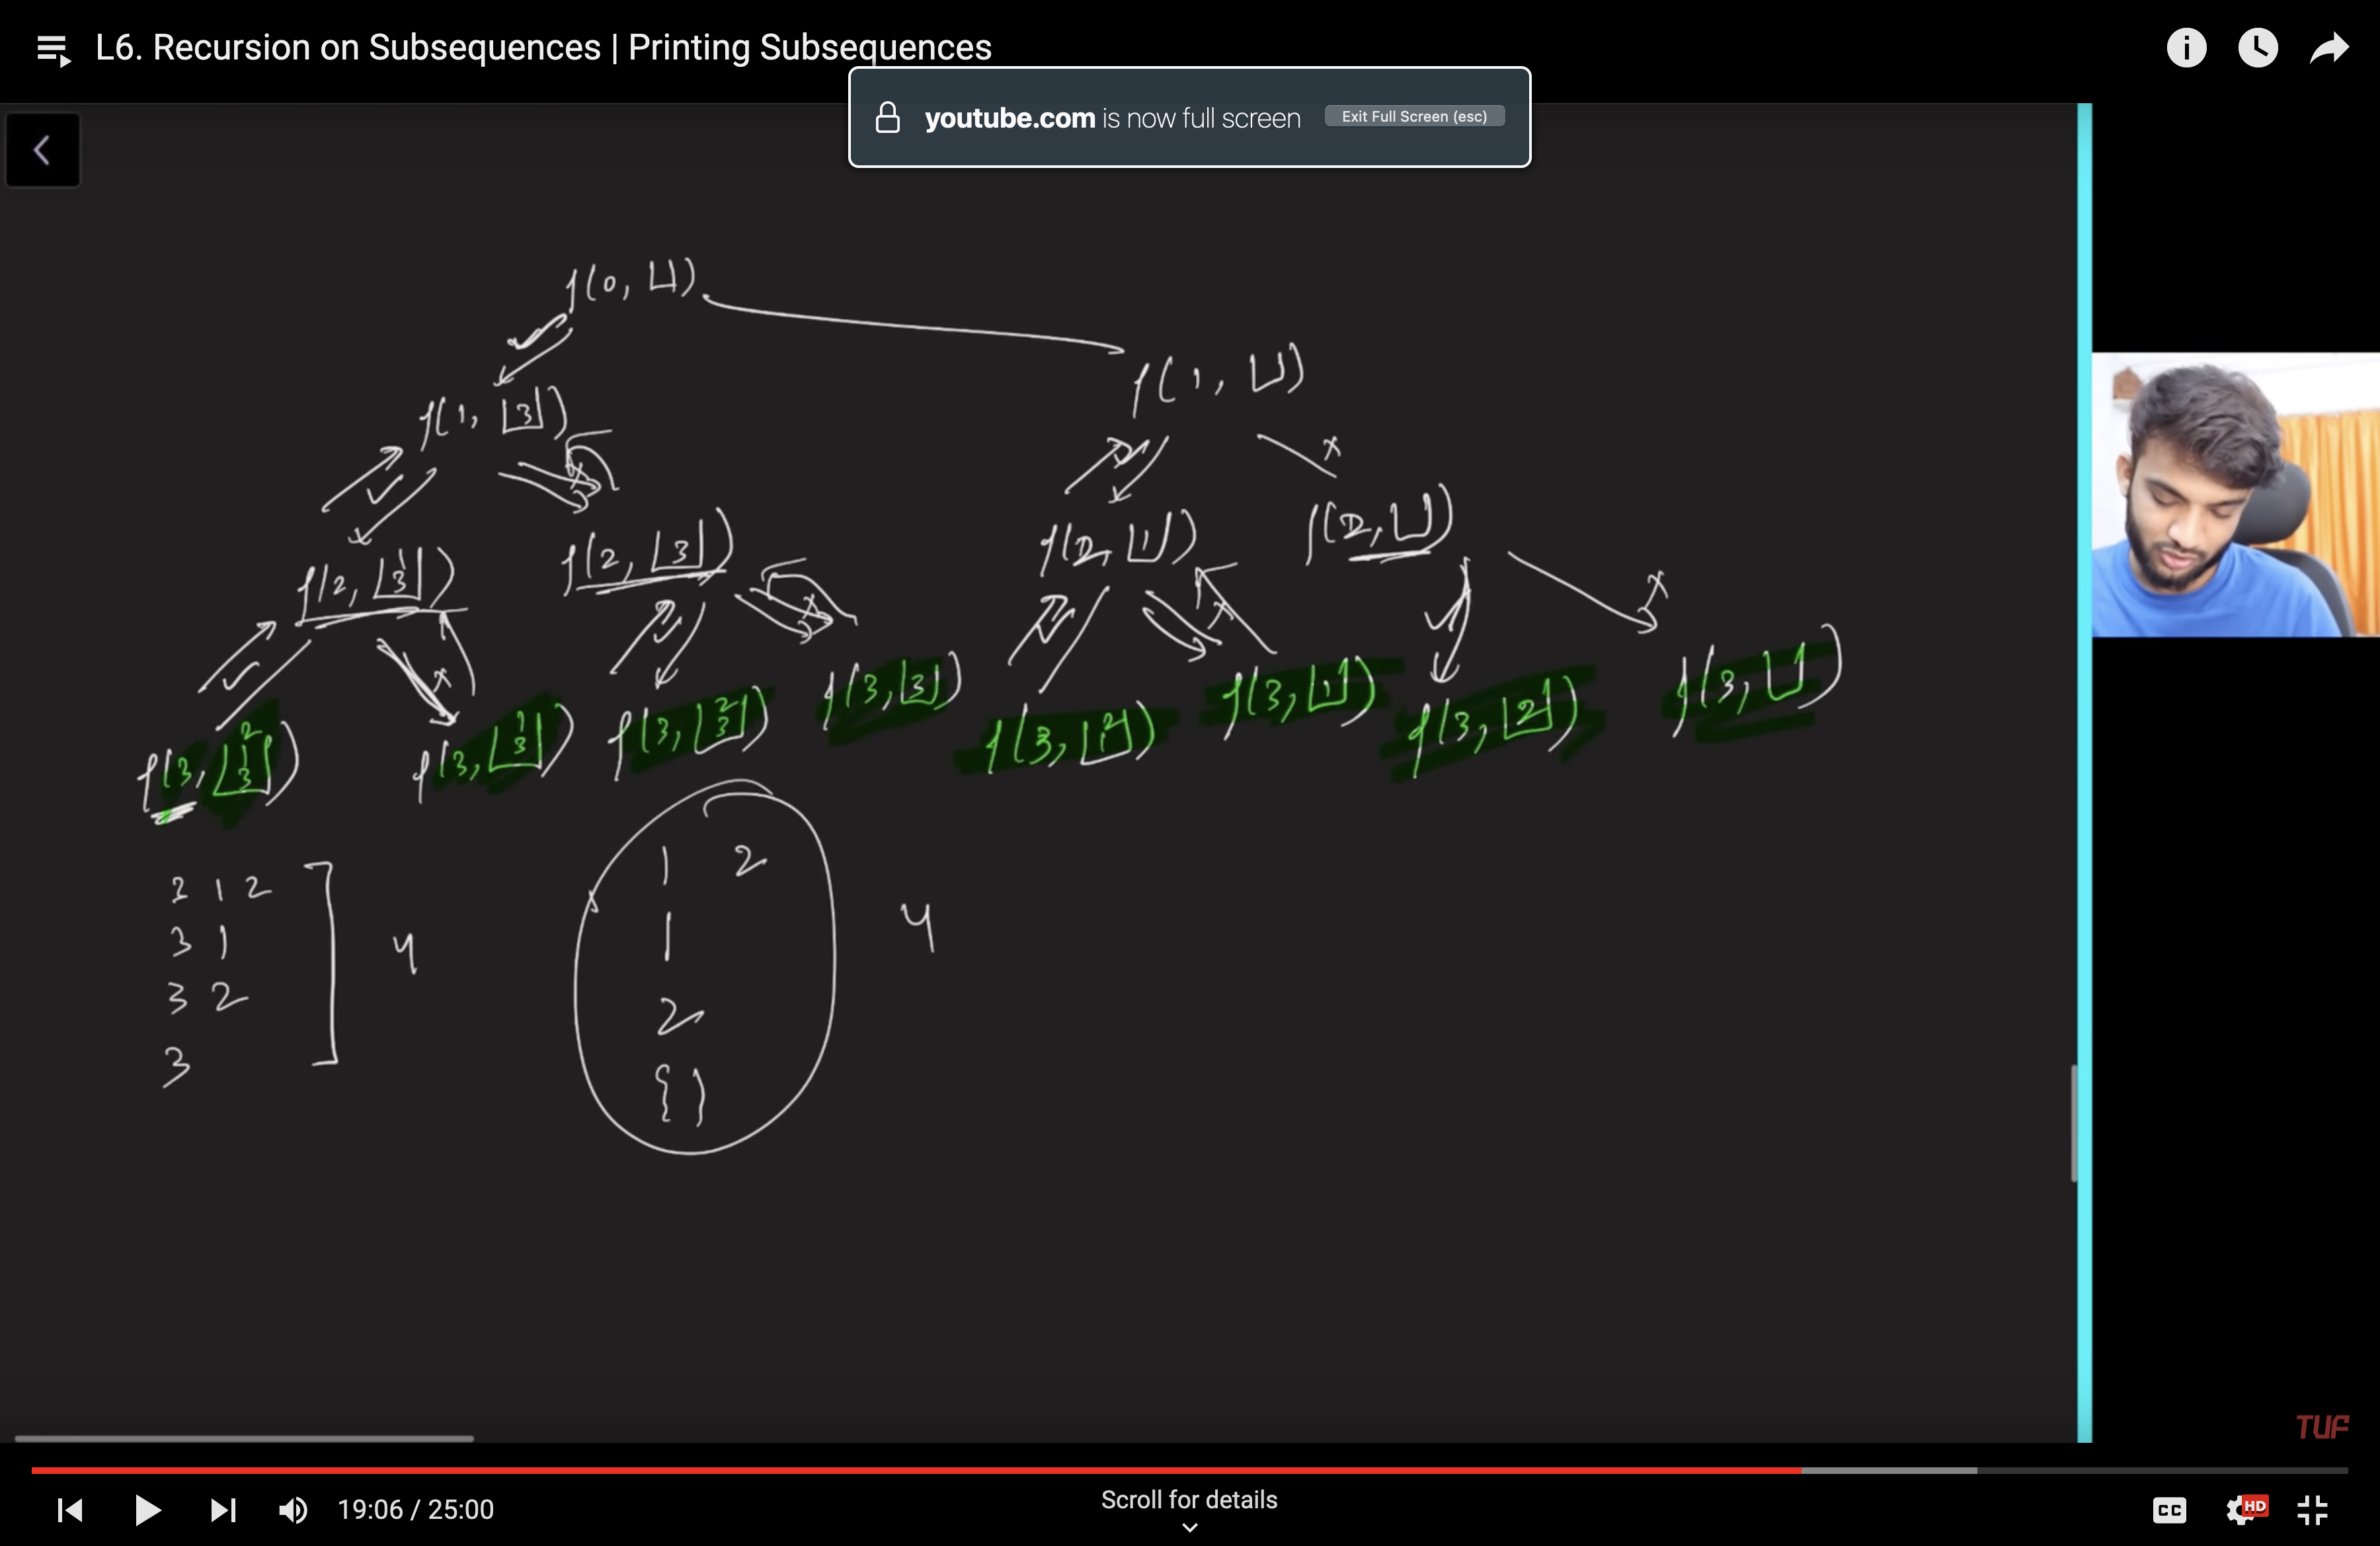 L6. Recursion on Subsequences | Printing Subsequences
youtube.com is now full screen Exit Full Screen (esc)
f(0, [])
f(1, [3])
f(1, [])
f(2, [3 1])
f(2, [3])
f(2, [1])
f(2, [])
f(3, [3 1 2])
f(3, [3 1])
f(3, [3 2])
f(3, [3])
f(3, [1 2])
f(3, [1])
f(3, [2])
f(3, [])
3 1 2
3 1
3 2
3
4
1 2
1
2
{}
4
TUF
19:06 / 25:00
Scroll for details
CC
HD